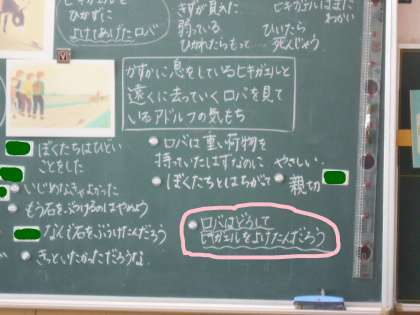 ヒキガエルを
ひかずに
よけてあげたロバ
きずが見えた
弱っている
ひかれたらもって
ヒキガエルはまだ
ひいたら
死んじゃう
かすかに息をしているヒキガエルと
遠くに去っていくロバを見て
いるアドルフの気もち
ぼくたちはひどい
ことをした
いじめなきゃよかった
もう石をぶつけるのはやめよう
なんで石をぶつけたんだろう
きっといたかっただろうな
ロバは重い荷物を
持っていたはずなのに やさしい
ぼくたちとはちがう
親切
ロバはどうして
ヒキガエルをよけたんだろう